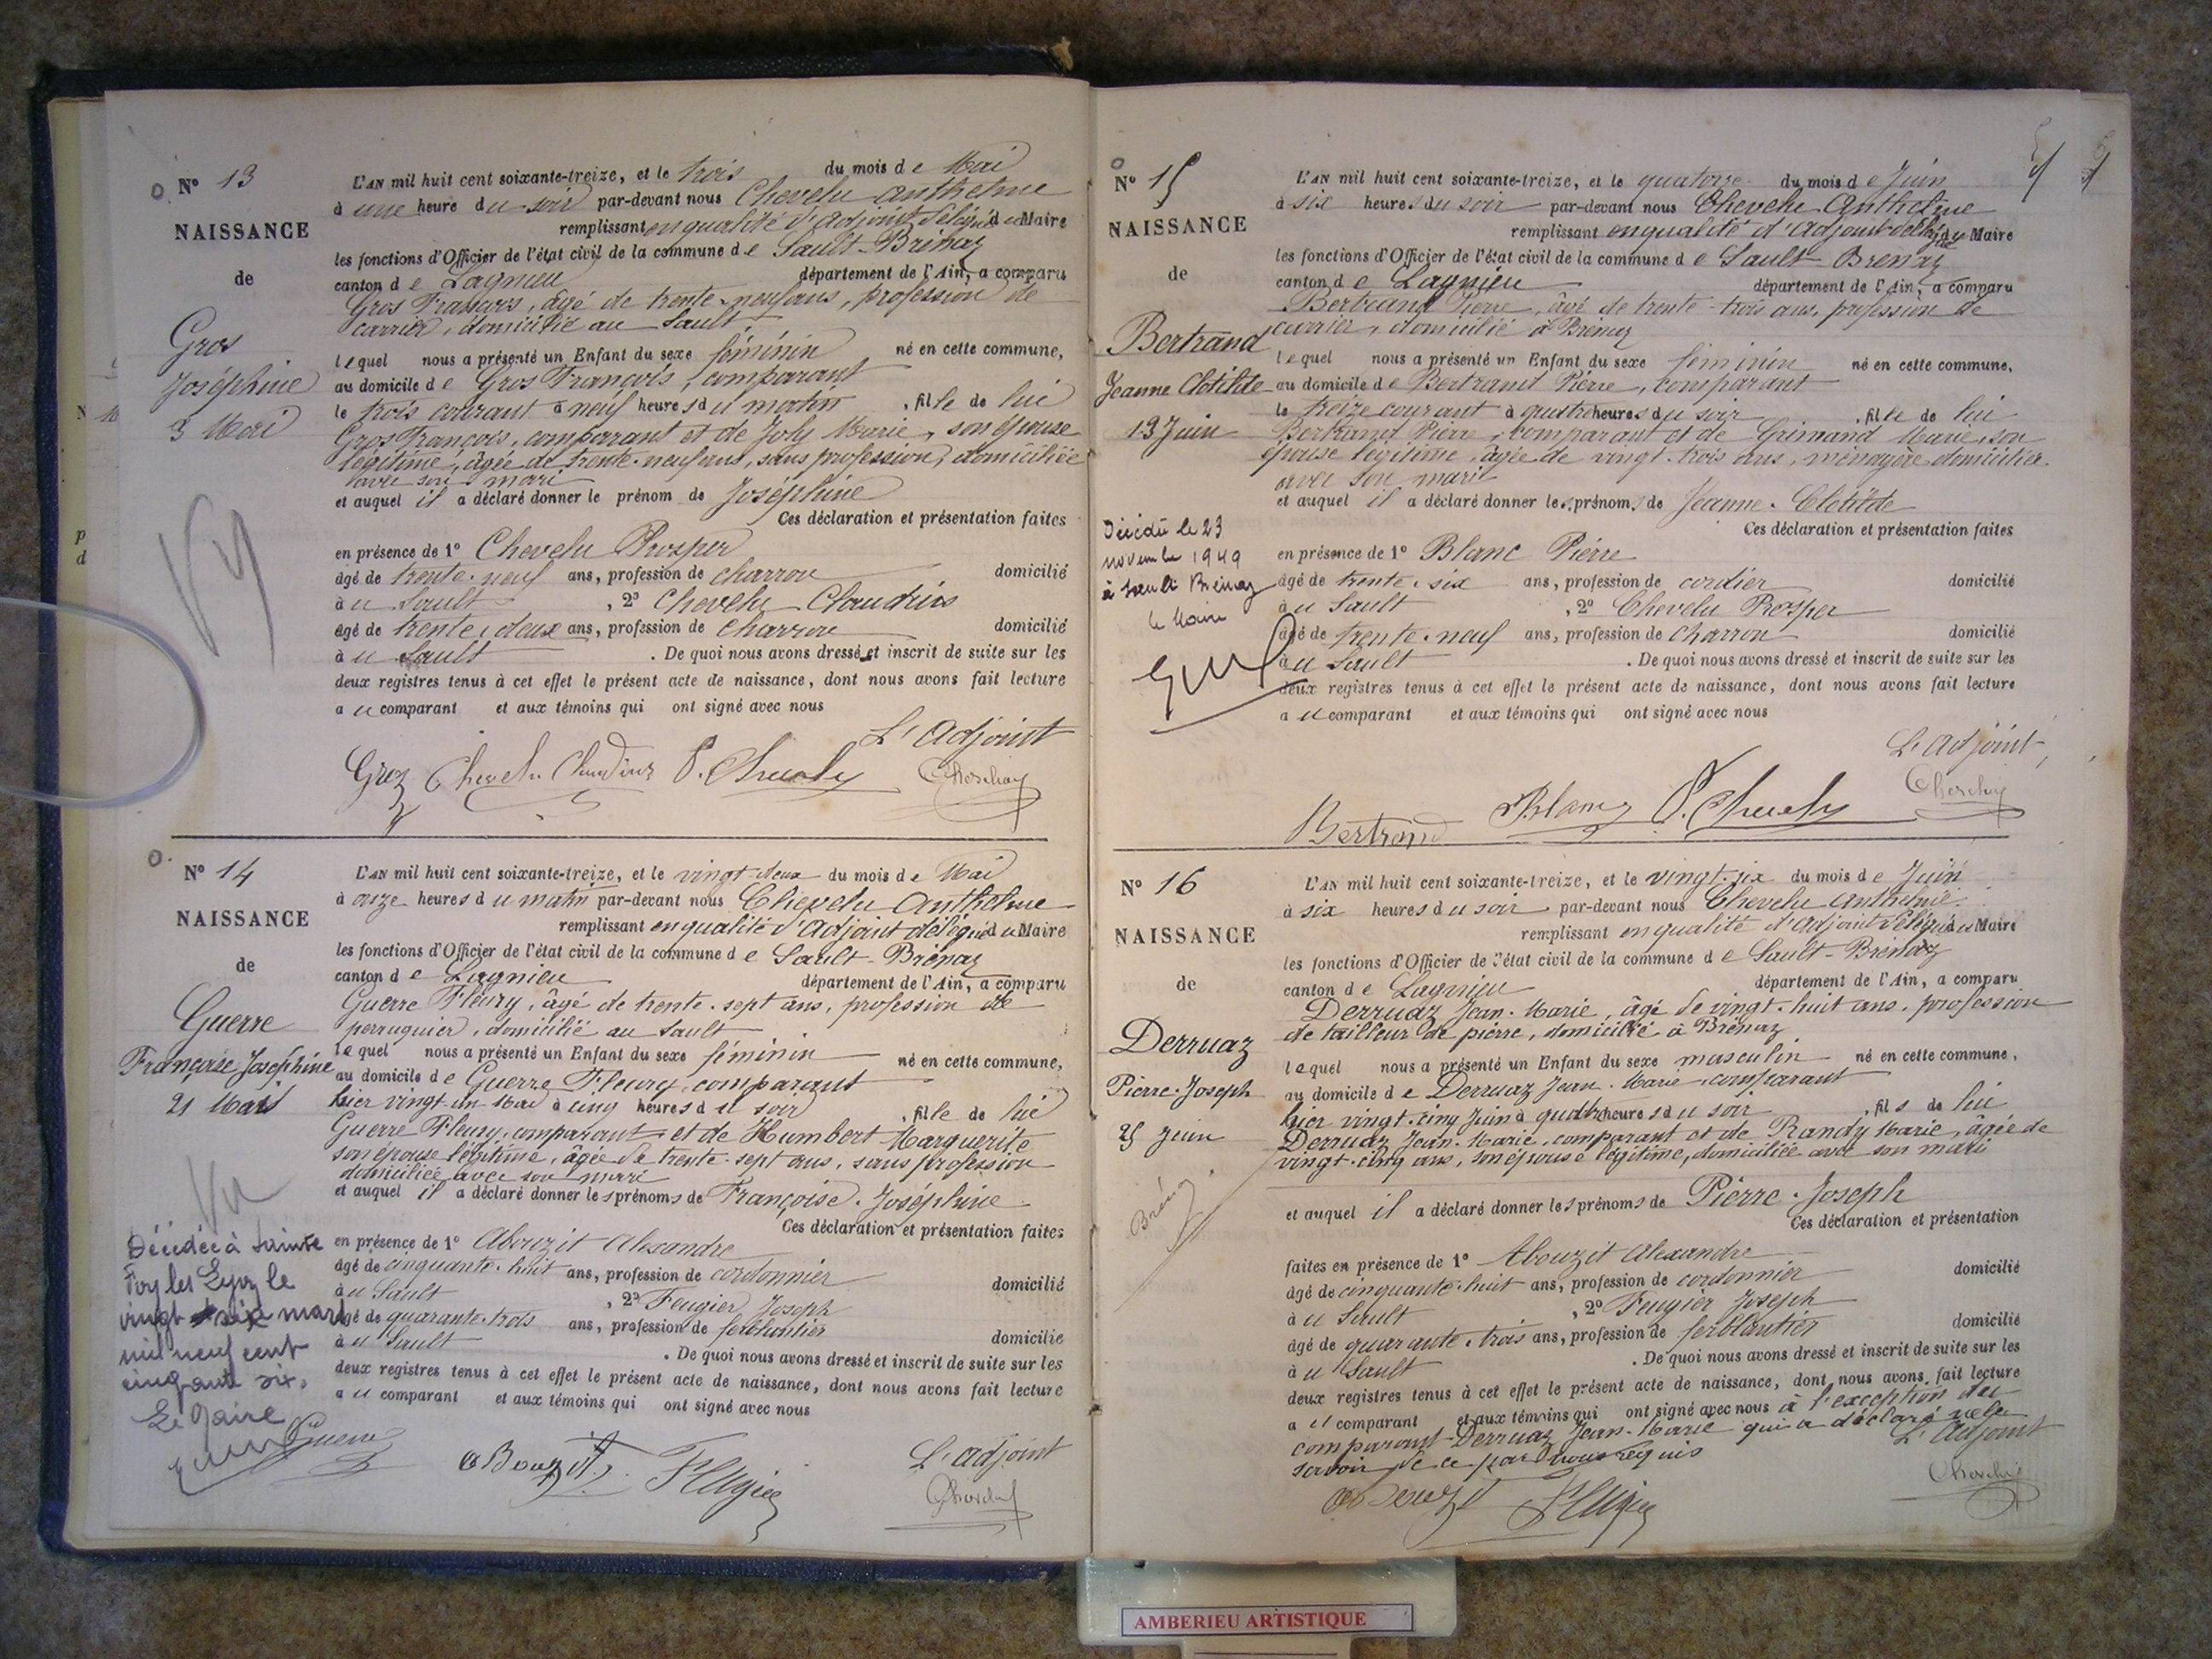 N° 13
NAISSANCE
de
Gros
Joséphine
3 Mai
L'AN mil huit cent soixante-treize, et le trois du mois de Mai
à une heure du soir par-devant nous Chevelu Anthelme
remplissant en qualité d'Adjoint délégué du Maire
les fonctions d'Officier de l'état civil de la commune de Sault-Brénaz
canton de Lagnieu département de l'Ain, a comparu
Gros François, âgé de trente-neuf ans, profession de
carrier, domicilié au Sault
lequel nous a présenté un Enfant du sexe féminin né en cette commune,
au domicile de Gros François, comparant
le trois courant à neuf heures du matin, fille de lui
Gros François, comparant et de Joly Marie, son épouse
légitime, âgée de trente-neuf ans, sans profession, domiciliée
avec son mari
et auquel il a déclaré donner le prénom de Joséphine
Ces déclaration et présentation faites
en présence de 1° Chevelu Prosper
âgé de trente-neuf ans, profession de charron domicilié
au Sault, 2° Chevelu Claudius
âgé de trente-deux ans, profession de charron domicilié
au Sault. De quoi nous avons dressé et inscrit de suite sur les
deux registres tenus à cet effet le présent acte de naissance, dont nous avons fait lecture
au comparant et aux témoins qui ont signé avec nous
L'Adjoint
Groz Chevelu Claudius P. Chevelu
N° 14
NAISSANCE
de
Guerre
Françoise Joséphine
21 Mai
Décédée à Sainte
Foy les Lyon le
vingt six mars
mil neuf cent
cinquante six.
Le Maire
L'AN mil huit cent soixante-treize, et le vingt-deux du mois de Mai
à onze heures du matin par-devant nous Chevelu Anthelme
remplissant en qualité d'Adjoint délégué du Maire
les fonctions d'Officier de l'état civil de la commune de Sault-Brénaz
canton de Lagnieu département de l'Ain, a comparu
Guerre Fleury, âgé de trente-sept ans, profession de
perruquier, domicilié au Sault
lequel nous a présenté un Enfant du sexe féminin né en cette commune,
au domicile de Guerre Fleury, comparant
hier vingt-un Mai à cinq heures du soir, fille de lui
Guerre Fleury, comparant et de Humbert Marguerite
son épouse légitime, âgée de trente-sept ans, sans profession
domiciliée avec son mari
et auquel il a déclaré donner les prénoms de Françoise-Joséphine
Ces déclaration et présentation faites
en présence de 1° Abouzit Alexandre
âgé de cinquante-huit ans, profession de cordonnier domicilié
au Sault, 2° Feugier Joseph
âgé de quarante-trois ans, profession de ferblantier domicilié
au Sault. De quoi nous avons dressé et inscrit de suite sur les
deux registres tenus à cet effet le présent acte de naissance, dont nous avons fait lecture
au comparant et aux témoins qui ont signé avec nous
L'adjoint
Guerre Abouzit Feugier
N° 15
NAISSANCE
de
Bertrand
Jeanne Clotilde
13 Juin
Décédé le 23
novembre 1949
à Sault Brénaz
le Maire
L'AN mil huit cent soixante-treize, et le quatorze du mois de Juin
à six heures du soir par-devant nous Chevelu Anthelme
remplissant en qualité d'adjoint délégué du Maire
les fonctions d'Officier de l'état civil de la commune de Sault-Brénaz
canton de Lagnieu département de l'Ain, a comparu
Bertrand Pierre, âgé de trente-trois ans, profession de
carrier, domicilié à Brénaz
lequel nous a présenté un Enfant du sexe féminin né en cette commune,
au domicile de Bertrand Pierre, comparant
le treize courant à quatre heures du soir, fille de lui
Bertrand Pierre, comparant et de Grimand Marie, son
épouse légitime, âgée de vingt-trois ans, ménagère domiciliée
avec son mari
et auquel il a déclaré donner les prénoms de Jeanne-Clotilde
Ces déclaration et présentation faites
en présence de 1° Blanc Pierre
âgé de trente-six ans, profession de cordier domicilié
au Sault, 2° Chevelu Prosper
âgé de trente-neuf ans, profession de charron domicilié
au Sault. De quoi nous avons dressé et inscrit de suite sur les
deux registres tenus à cet effet le présent acte de naissance, dont nous avons fait lecture
au comparant et aux témoins qui ont signé avec nous
L'adjoint,
Bertrand Blanc P. Chevelu
N° 16
NAISSANCE
de
Derruaz
Pierre-Joseph
25 Juin
Brénaz
L'AN mil huit cent soixante-treize, et le vingt-six du mois de Juin
à six heures du soir par-devant nous Chevelu Anthelme
remplissant en qualité d'adjoint délégué du Maire
les fonctions d'Officier de l'état civil de la commune de Sault-Brénaz
canton de Lagnieu département de l'Ain, a comparu
Derruaz Jean-Marie, âgé de vingt-huit ans, profession
de tailleur de pierre, domicilié à Brénaz
lequel nous a présenté un Enfant du sexe masculin né en cette commune,
au domicile de Derruaz Jean-Marie, comparant
hier vingt-cinq Juin à quatre heures du soir, fils de lui
Derruaz Jean-Marie, comparant et de Randy Marie, âgée de
vingt-cinq ans, son épouse légitime, domiciliée avec son mari
et auquel il a déclaré donner les prénoms de Pierre-Joseph
Ces déclaration et présentation
faites en présence de 1° Abouzit Alexandre
âgé de cinquante-huit ans, profession de cordonnier domicilié
au Sault, 2° Feugier Joseph
âgé de quarante-trois ans, profession de ferblantier domicilié
au Sault. De quoi nous avons dressé et inscrit de suite sur les
deux registres tenus à cet effet le présent acte de naissance, dont nous avons fait lecture
au comparant et aux témoins qui ont signé avec nous à l'exception du
comparant Derruaz Jean-Marie qui a déclaré ne le
savoir de ce par nous requis
L'Adjoint
Abouzit Feugier
AMBERIEU ARTISTIQUE